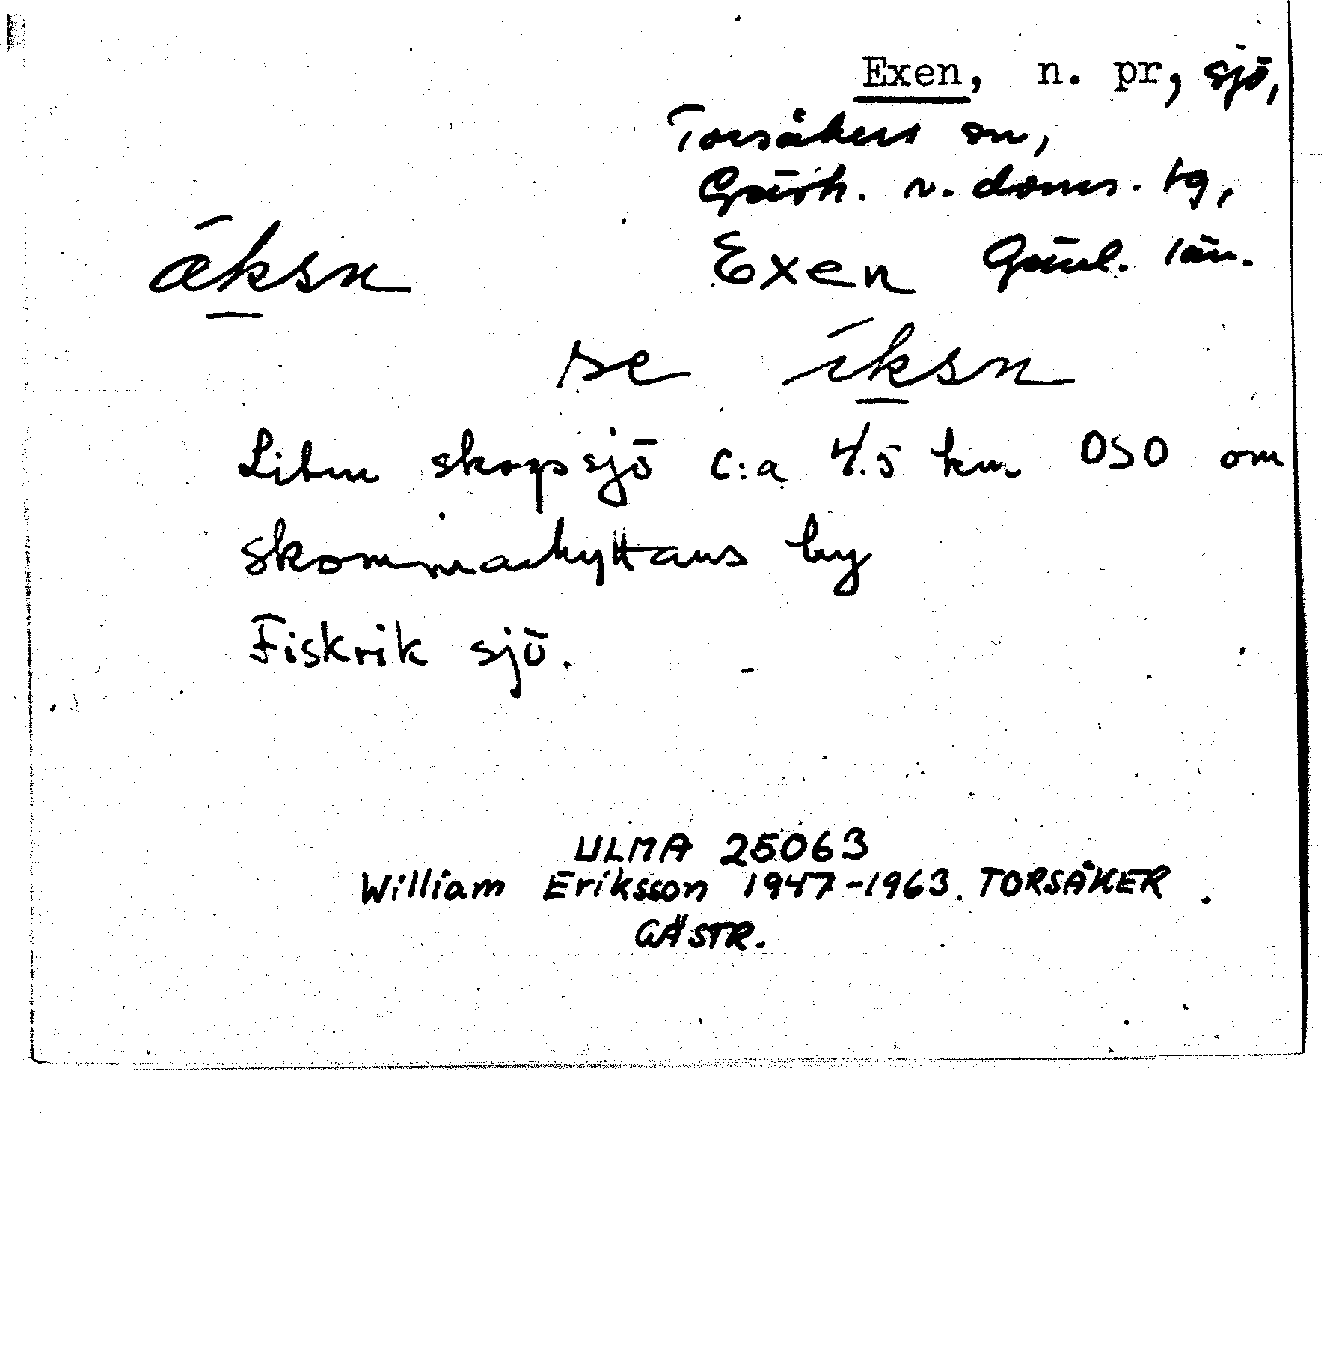 Exen, n. pr, sjö,
Torsåkers sn,
Gästr. v. doms. tg,
Gävl. län.
äksn Exen
se iksn
Liten skogssjö c:a 4.5 km OSO om
Skommarhyttans by
Fiskrik sjö.
ULMA 25063
William Eriksson 1947-1963. TORSÅKER.
GÄSTR.